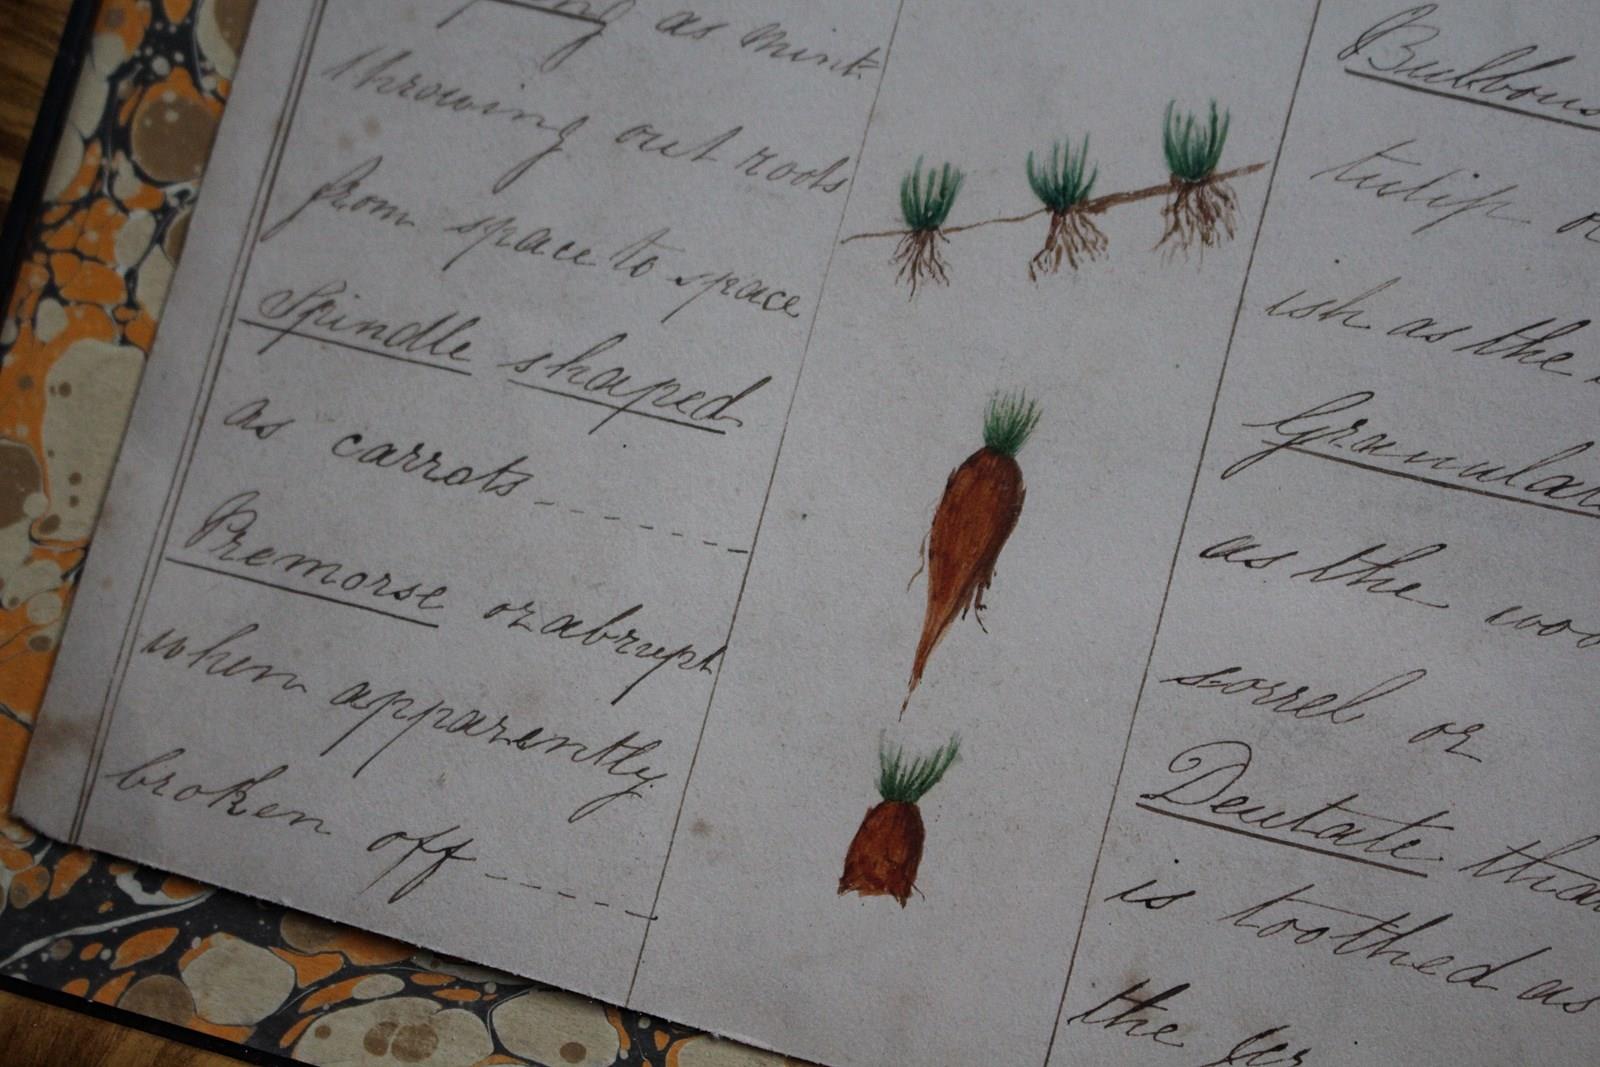 as mint
throwing out roots
from space to space
Spindle shaped
as carrots
Premorse or abrupt
when apparently
broken off
Bulbous
tulip
ish as the
Granular
as the
sorrel or
Dentate
is toothed as
the